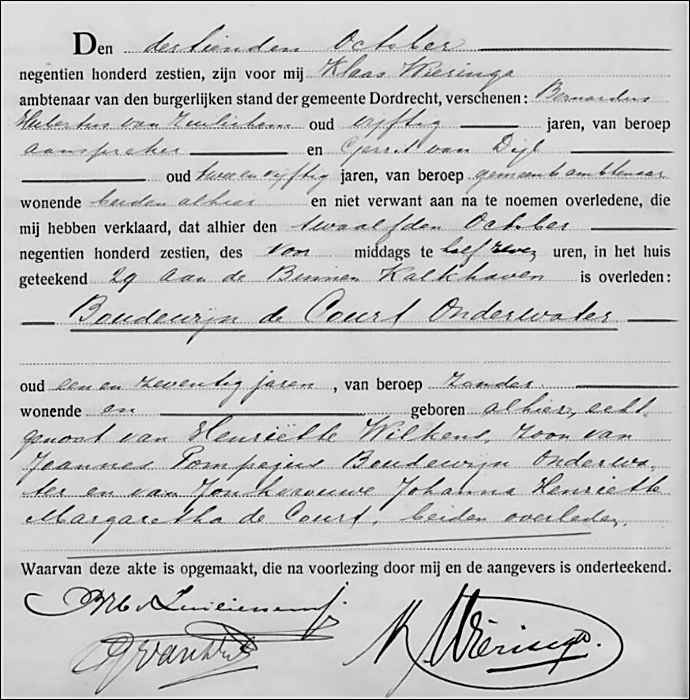 Den dertienden October
negentien honderd zestien, zijn voor mij Klaas Wieringa
ambtenaar van den burgerlijken stand der gemeente Dordrecht, verschenen: Bernardus
Hubertus van Zeulichem oud vijftig jaren, van beroep
aanspreker en Gerrit van Dijl
oud twee en vijftig jaren, van beroep gemeente ambtenaar
wonende beiden alhier en niet verwant aan na te noemen overledene, die
mij hebben verklaard, dat alhier den twaalfden October
negentien honderd zestien, des voor middags te half zeven uren, in het huis
geteekend 29 aan de Binnen Kalkhaven is overleden:
Boudewijn de Court Onderwater
oud een en zeventig jaren, van beroep zonder
wonende en geboren alhier, echt-
genoot van Henriëtte Wilkens, zoon van
Jeannes Pompejus Boudewijn Onderwa-
ter en van Jonkvrouwe Johanna Henriette
Margaretha de Court, beiden overleden.
Waarvan deze akte is opgemaakt, die na voorlezing door mij en de aangevers is onderteekend.
GvanDijl
K Wieringa.